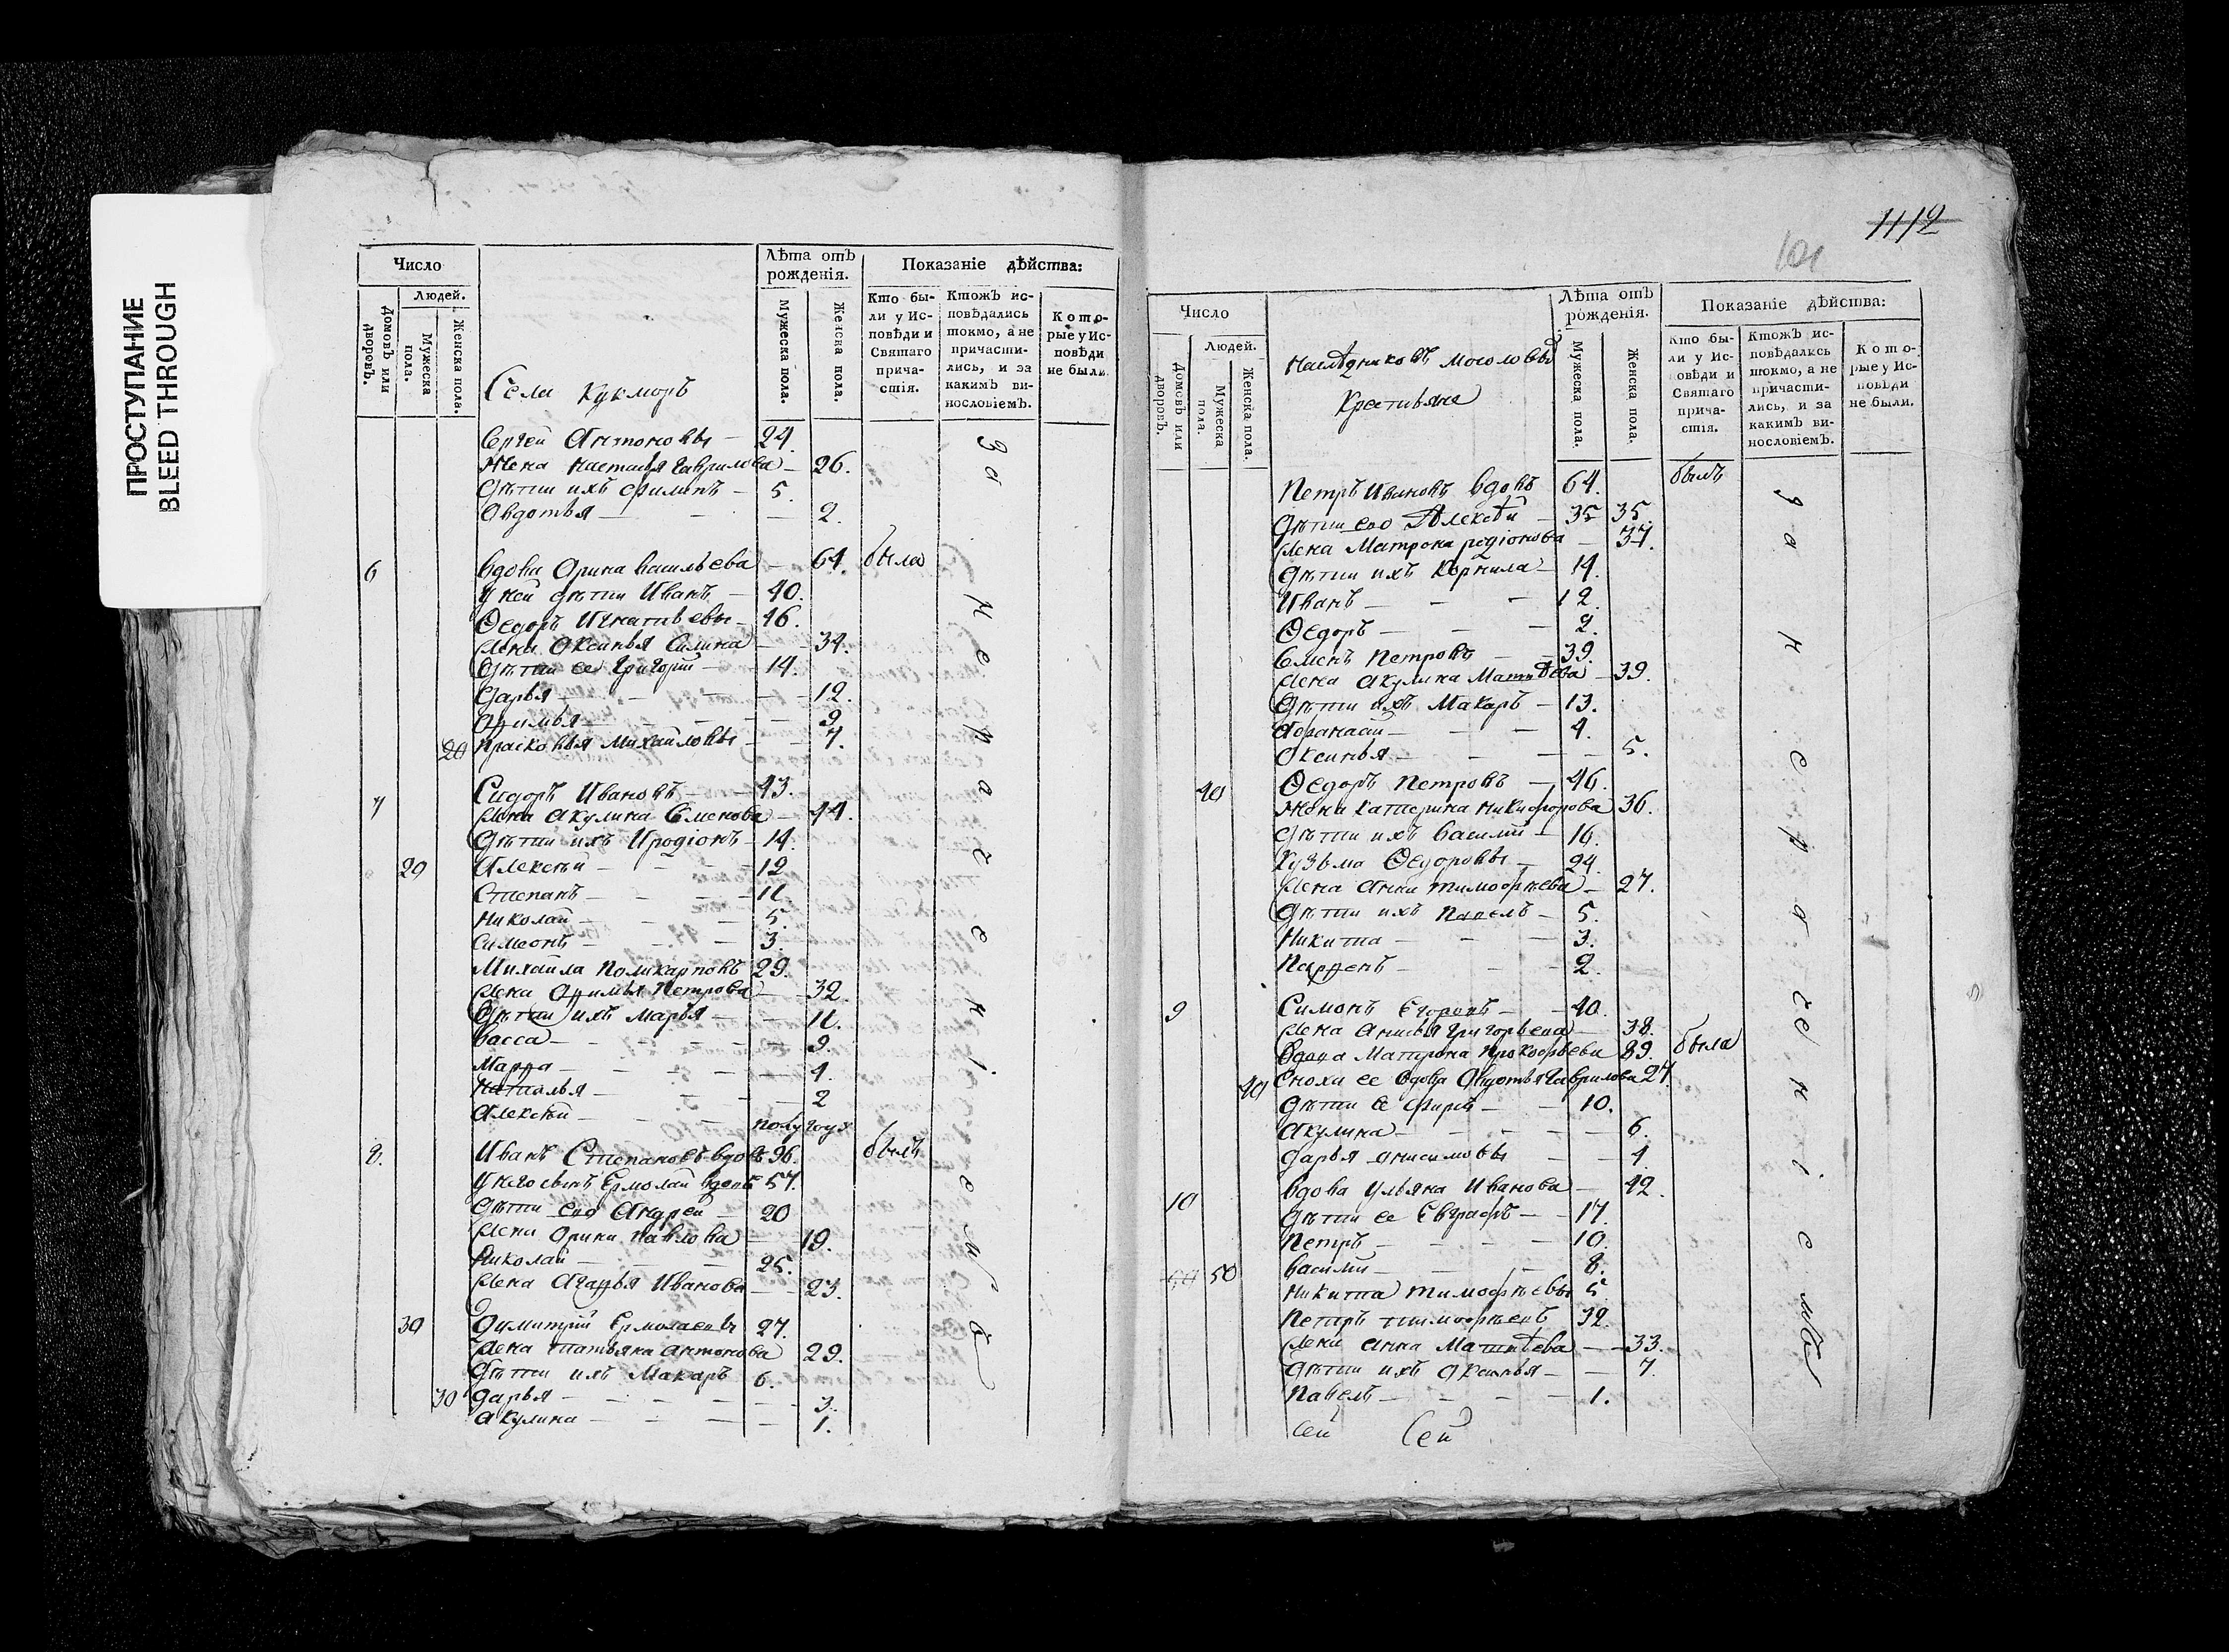 ПРОСТУПАНИЕ
BLEED THROUGH
Число
Людей.
Домовъ или дворовъ.
Мужеска пола.
Женска пола.
Лѣта отъ рожденія.
Мужеска пола.
Женска пола.
Показаніе дѣйства:
Кто бы-
ли у Ис-
повѣди и
Святаго
прича-
стія.
Ктожъ ис-
повѣдались
токмо, а не
причасти-
лись, и за
какимъ ви-
нословіемъ.
Кото-
рые у Ис-
повѣди
не были.
Села Кукморъ
Сергей Антоновъ — 24.
Жена Настасья Гаврилова — 26.
Дѣти ихъ Филипъ — 5.
Овдотья — 2.
6 Вдова Орина Васильева — 64. была
У ней дѣти Иванъ — 40.
Ѳедоръ Игнатьевы — 46.
Жена Оксинья Силина — 34.
Дѣти ее Григорий — 14.
Дарья — 12.
Офимья — 9
20 Прасковья Михайловы — 7.
7 Сидоръ Ивановъ — 43.
Жена Акулина Семенова — 44.
Дѣти ихъ Иродіонъ — 14.
20 Алексѣй — 12
Степанъ — 11.
Николай — 5.
Симеонъ — 3.
Михайла Поликарповъ 29.
Жена Офимья Петрова — 32.
Дѣти ихъ Марья — 11.
Васса — 9.
Марфа — 4.
Наталья — 2
Алексѣй — полугоду
8. Иванъ Степановъ вдовъ 96. былъ
У него сынъ Ермолай вдовъ 57.
Дѣти его Андрей — 20
Жена Орина Павлова — 19.
Николай — 25.
Жена Агафья Иванова — 23.
30 Димитрий Ермолаевъ 27.
Жена Татьяна Антонова 29.
Дѣти ихъ Макаръ 6.
30 Дарья — 3.
Акулина — 1.
За нераченіемъ
1112
Число
Людей.
Домовъ или дворовъ.
Мужеска пола.
Женска пола.
Наслѣдниковъ Мосоловы
Крестьяна
Лѣта отъ рожденія.
Мужеска пола.
Женска пола.
Показаніе дѣйства:
Кто бы-
ли у Ис-
повѣди и
Святаго
прича-
стія.
Ктожъ ис-
повѣдались
токмо, а не
причасти-
лись, и за
какимъ ви-
нословіемъ.
Кото-
рые у Ис-
повѣди
не были.
Петръ Ивановъ вдовъ 64. былъ
Дѣти его Алексѣй — 35 35.
Жена Матрона Родіонова — 37.
Дѣти ихъ Корнила — 14.
Иванъ — 12.
Ѳедоръ — 2.
Семенъ Петровъ — 39.
Жена Акулина Матвѣева — 39.
Дѣти ихъ Макаръ — 13.
Афанасий — 4.
Оксинья — 5.
40 Ѳедоръ Петровъ — 46.
Жена Катерина Никифорова 36.
Дѣти ихъ Василий — 16.
Кузьма Ѳедоровы — 24.
Жена Анна Тимофѣева — 27.
Дѣти ихъ Павелъ — 5.
Никита — 3.
Парфенъ — 2.
9 Симонъ Егоровъ — 40.
Жена Анисья Григорьева — 38.
Вдова Матрона Прокофьева 89. была
40 Сноха ее вдова Овдотья Гаврилова 27.
Дѣти ее Фирсъ — 10.
Акулина — 6.
Дарья Анисимовы — 4
10 Вдова Ульяна Иванова — 42.
Дѣти ее Евграфъ — 17.
Петръ — 10.
50 Василий — 8.
Никита Тимофѣевы 5.
Петръ Тимофѣевъ 32.
Жена Анна Матвѣева — 33.
Дѣти ихъ Оксинья — 7.
Павелъ — 1.
Сей Сей
За нераченіемъ